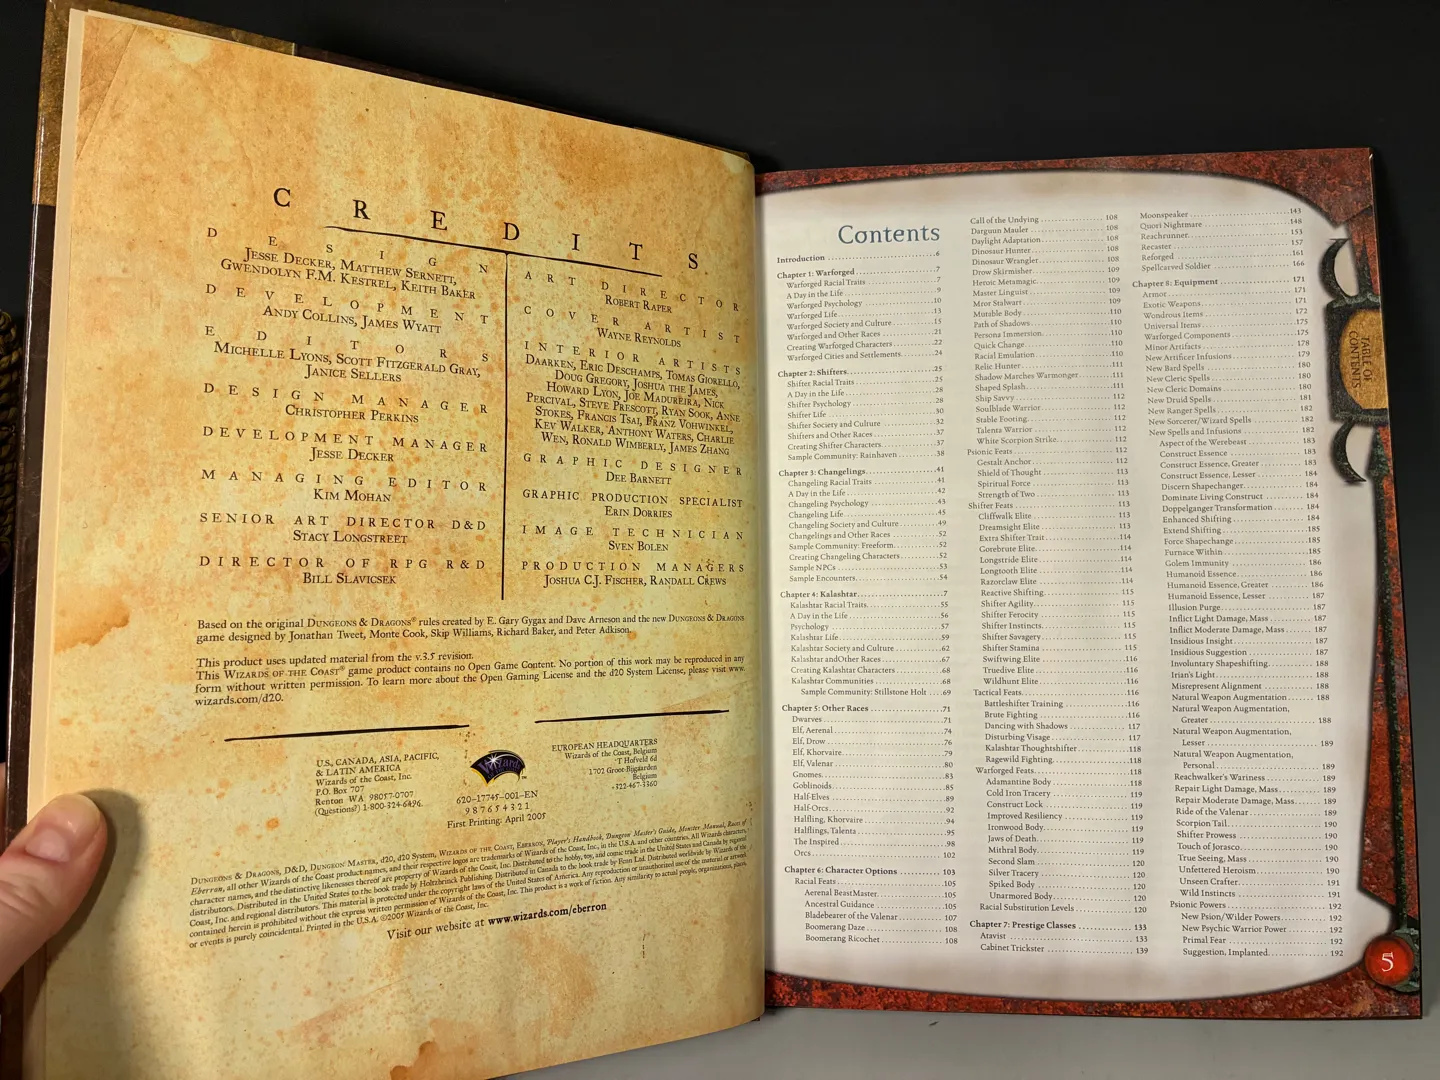 CREDITS
DESIGN
JESSE DECKER, MATTHEW SERNETT,
GWENDOLYN F.M. KESTREL, KEITH BAKER
DEVELOPMENT
ANDY COLLINS, JAMES WYATT
EDITORS
MICHELLE LYONS, SCOTT FITZGERALD GRAY,
JANICE SELLERS
DESIGN MANAGER
CHRISTOPHER PERKINS
DEVELOPMENT MANAGER
JESSE DECKER
MANAGING EDITOR
KIM MOHAN
SENIOR ART DIRECTOR D&D
STACY LONGSTREET
DIRECTOR OF RPG R&D
BILL SLAVICSEK
ART DIRECTOR
ROBERT RAPER
COVER ARTIST
WAYNE REYNOLDS
INTERIOR ARTISTS
DAARKEN, ERIC DESCHAMPS, TOMAS GIORELLO,
DOUG GREGORY, JOSHUA THE JAMES,
HOWARD LYON, JOE MADUREIRA, NICK
PERCIVAL, STEVE PRESCOTT, RYAN SOOK, ANNE
STOKES, FRANCIS TSAI, FRANZ VOHWINKEL,
KEV WALKER, ANTHONY WATERS, CHARLIE
WEN, RONALD WIMBERLY, JAMES ZHANG
GRAPHIC DESIGNER
DEE BARNETT
GRAPHIC PRODUCTION SPECIALIST
ERIN DORRIES
IMAGE TECHNICIAN
SVEN BOLEN
PRODUCTION MANAGERS
JOSHUA C.J. FISCHER, RANDALL CREWS
Based on the original DUNGEONS & DRAGONS® rules created by E. Gary Gygax and Dave Arneson and the new DUNGEONS & DRAGONS
game designed by Jonathan Tweet, Monte Cook, Skip Williams, Richard Baker, and Peter Adkison.
This product uses updated material from the v.3.5 revision.
This WIZARDS OF THE COAST® game product contains no Open Game Content. No portion of this work may be reproduced in any
form without written permission. To learn more about the Open Gaming License and the d20 System License, please visit www.
wizards.com/d20.
U.S., CANADA, ASIA, PACIFIC,
& LATIN AMERICA
Wizards of the Coast, Inc.
P.O. Box 707
Renton WA 98057-0707
(Questions?) 1-800-324-6496
Wizards
™
620-17745-001-EN
9 8 7 6 5 4 3 2 1
First Printing: April 2005
EUROPEAN HEADQUARTERS
Wizards of the Coast, Belgium
'T Hofveld 6d
1702 Groot-Bijgaarden
Belgium
+322-467-3360
DUNGEONS & DRAGONS, D&D, DUNGEON MASTER, d20, d20 System, WIZARDS OF THE COAST, EBERRON, Player's Handbook, Dungeon Master's Guide, Monster Manual, Races of
Eberron, all other Wizards of the Coast product names, and their respective logos are trademarks of Wizards of the Coast, Inc., in the U.S.A. and other countries. All Wizards characters,
character names, and the distinctive likenesses thereof are property of Wizards of the Coast, Inc. Distributed to the hobby, toy, and comic trade in the United States and Canada by regional
distributors. Distributed in the United States to the book trade by Holtzbrinck Publishing. Distributed in Canada to the book trade by Fenn Ltd. Distributed worldwide by Wizards of the
Coast, Inc. and regional distributors. This material is protected under the copyright laws of the United States of America. Any reproduction or unauthorized use of the material or artwork
contained herein is prohibited without the express written permission of Wizards of the Coast, Inc. This product is a work of fiction. Any similarity to actual people, organizations, places,
or events is purely coincidental. Printed in the U.S.A. ©2005 Wizards of the Coast, Inc.
Visit our website at www.wizards.com/eberron
Contents
Introduction 6
Chapter 1: Warforged 7
Warforged Racial Traits 7
A Day in the Life 9
Warforged Psychology 10
Warforged Life 13
Warforged Society and Culture 15
Warforged and Other Races 21
Creating Warforged Characters 22
Warforged Cities and Settlements 24
Chapter 2: Shifters 25
Shifter Racial Traits 25
A Day in the Life 28
Shifter Psychology 28
Shifter Life 30
Shifter Society and Culture 32
Shifters and Other Races 37
Creating Shifter Characters 37
Sample Community: Rainhaven 38
Chapter 3: Changelings 41
Changeling Racial Traits 41
A Day in the Life 42
Changeling Psychology 43
Changeling Life 45
Changeling Society and Culture 49
Changelings and Other Races 52
Sample Community: Freeform 52
Creating Changeling Characters 52
Sample NPCs 53
Sample Encounters 54
Chapter 4: Kalashtar 7
Kalashtar Racial Traits 55
A Day in the Life 56
Psychology 57
Kalashtar Life 59
Kalashtar Society and Culture 62
Kalashtar andOther Races 67
Creating Kalashtar Characters 68
Kalashtar Communities 68
Sample Community: Stillstone Holt 69
Chapter 5: Other Races 71
Dwarves 71
Elf, Aerenal 74
Elf, Drow 76
Elf, Khorvaire 79
Elf, Valenar 80
Gnomes 83
Goblinoids 85
Half-Elves 89
Half-Orcs 92
Halfling, Khorvaire 94
Halflings, Talenta 95
The Inspired 98
Orcs 102
Chapter 6: Character Options 103
Racial Feats 105
Aerenal BeastMaster 105
Ancestral Guidance 105
Bladebearer of the Valenar 107
Boomerang Daze 108
Boomerang Ricochet 108
Call of the Undying 108
Darguun Mauler 108
Daylight Adaptation 108
Dinosaur Hunter 108
Dinosaur Wrangler 108
Drow Skirmisher 109
Heroic Metamagic 109
Master Linguist 109
Mror Stalwart 109
Mutable Body 110
Path of Shadows 110
Persona Immersion 110
Quick Change 110
Racial Emulation 110
Relic Hunter 111
Shadow Marches Warmonger 111
Shaped Splash 111
Ship Savvy 112
Soulblade Warrior 112
Stable Footing 112
Talenta Warrior 112
White Scorpion Strike 112
Psionic Feats 112
Gestalt Anchor 112
Shield of Thought 113
Spiritual Force 113
Strength of Two 113
Shifter Feats 113
Cliffwalk Elite 113
Dreamsight Elite 113
Extra Shifter Trait 114
Gorebrute Elite 114
Longstride Elite 114
Longtooth Elite 114
Razorclaw Elite 114
Reactive Shifting 115
Shifter Agility 115
Shifter Ferocity 115
Shifter Instincts 115
Shifter Savagery 115
Shifter Stamina 115
Swiftwing Elite 116
Truedive Elite 116
Wildhunt Elite 116
Tactical Feats 116
Battleshifter Training 116
Brute Fighting 116
Dancing with Shadows 117
Disturbing Visage 117
Kalashtar Thoughtshifter 118
Ragewild Fighting 118
Warforged Feats 118
Adamantine Body 118
Cold Iron Tracery 119
Construct Lock 119
Improved Resiliency 119
Ironwood Body 119
Jaws of Death 119
Mithral Body 119
Second Slam 120
Silver Tracery 120
Spiked Body 120
Unarmored Body 120
Racial Substitution Levels 120
Chapter 7: Prestige Classes 133
Atavist 133
Cabinet Trickster 139
Moonspeaker 143
Quori Nightmare 148
Reachrunner 153
Recaster 157
Reforged 161
Spellcarved Soldier 166
Chapter 8: Equipment 171
Armor 171
Exotic Weapons 171
Wondrous Items 172
Universal Items 175
Warforged Components 175
Minor Artifacts 178
New Artificer Infusions 179
New Bard Spells 180
New Cleric Spells 180
New Cleric Domains 180
New Druid Spells 181
New Ranger Spells 182
New Sorcerer/Wizard Spells 182
New Spells and Infusions 182
Aspect of the Werebeast 183
Construct Essence 183
Construct Essence, Greater 183
Construct Essence, Lesser 184
Discern Shapechanger 184
Dominate Living Construct 184
Doppelganger Transformation 184
Enhanced Shifting 184
Extend Shifting 185
Force Shapechange 185
Furnace Within 185
Golem Immunity 186
Humanoid Essence 186
Humanoid Essence, Greater 186
Humanoid Essence, Lesser 187
Illusion Purge 187
Inflict Light Damage, Mass 187
Inflict Moderate Damage, Mass 187
Insidious Insight 187
Insidious Suggestion 187
Involuntary Shapeshifting 188
Irian's Light 188
Misrepresent Alignment 188
Natural Weapon Augmentation 188
Natural Weapon Augmentation,
Greater 188
Natural Weapon Augmentation,
Lesser 189
Natural Weapon Augmentation,
Personal 189
Reachwalker's Wariness 189
Repair Light Damage, Mass 189
Repair Moderate Damage, Mass 189
Ride of the Valenar 189
Scorpion Tail 190
Shifter Prowess 190
Touch of Jorasco 190
True Seeing, Mass 190
Unfettered Heroism 190
Unseen Crafter 191
Wild Instincts 191
Psionic Powers 192
New Psion/Wilder Powers 192
New Psychic Warrior Power 192
Primal Fear 192
Suggestion, Implanted 192
TABLE OF
CONTENTS
5